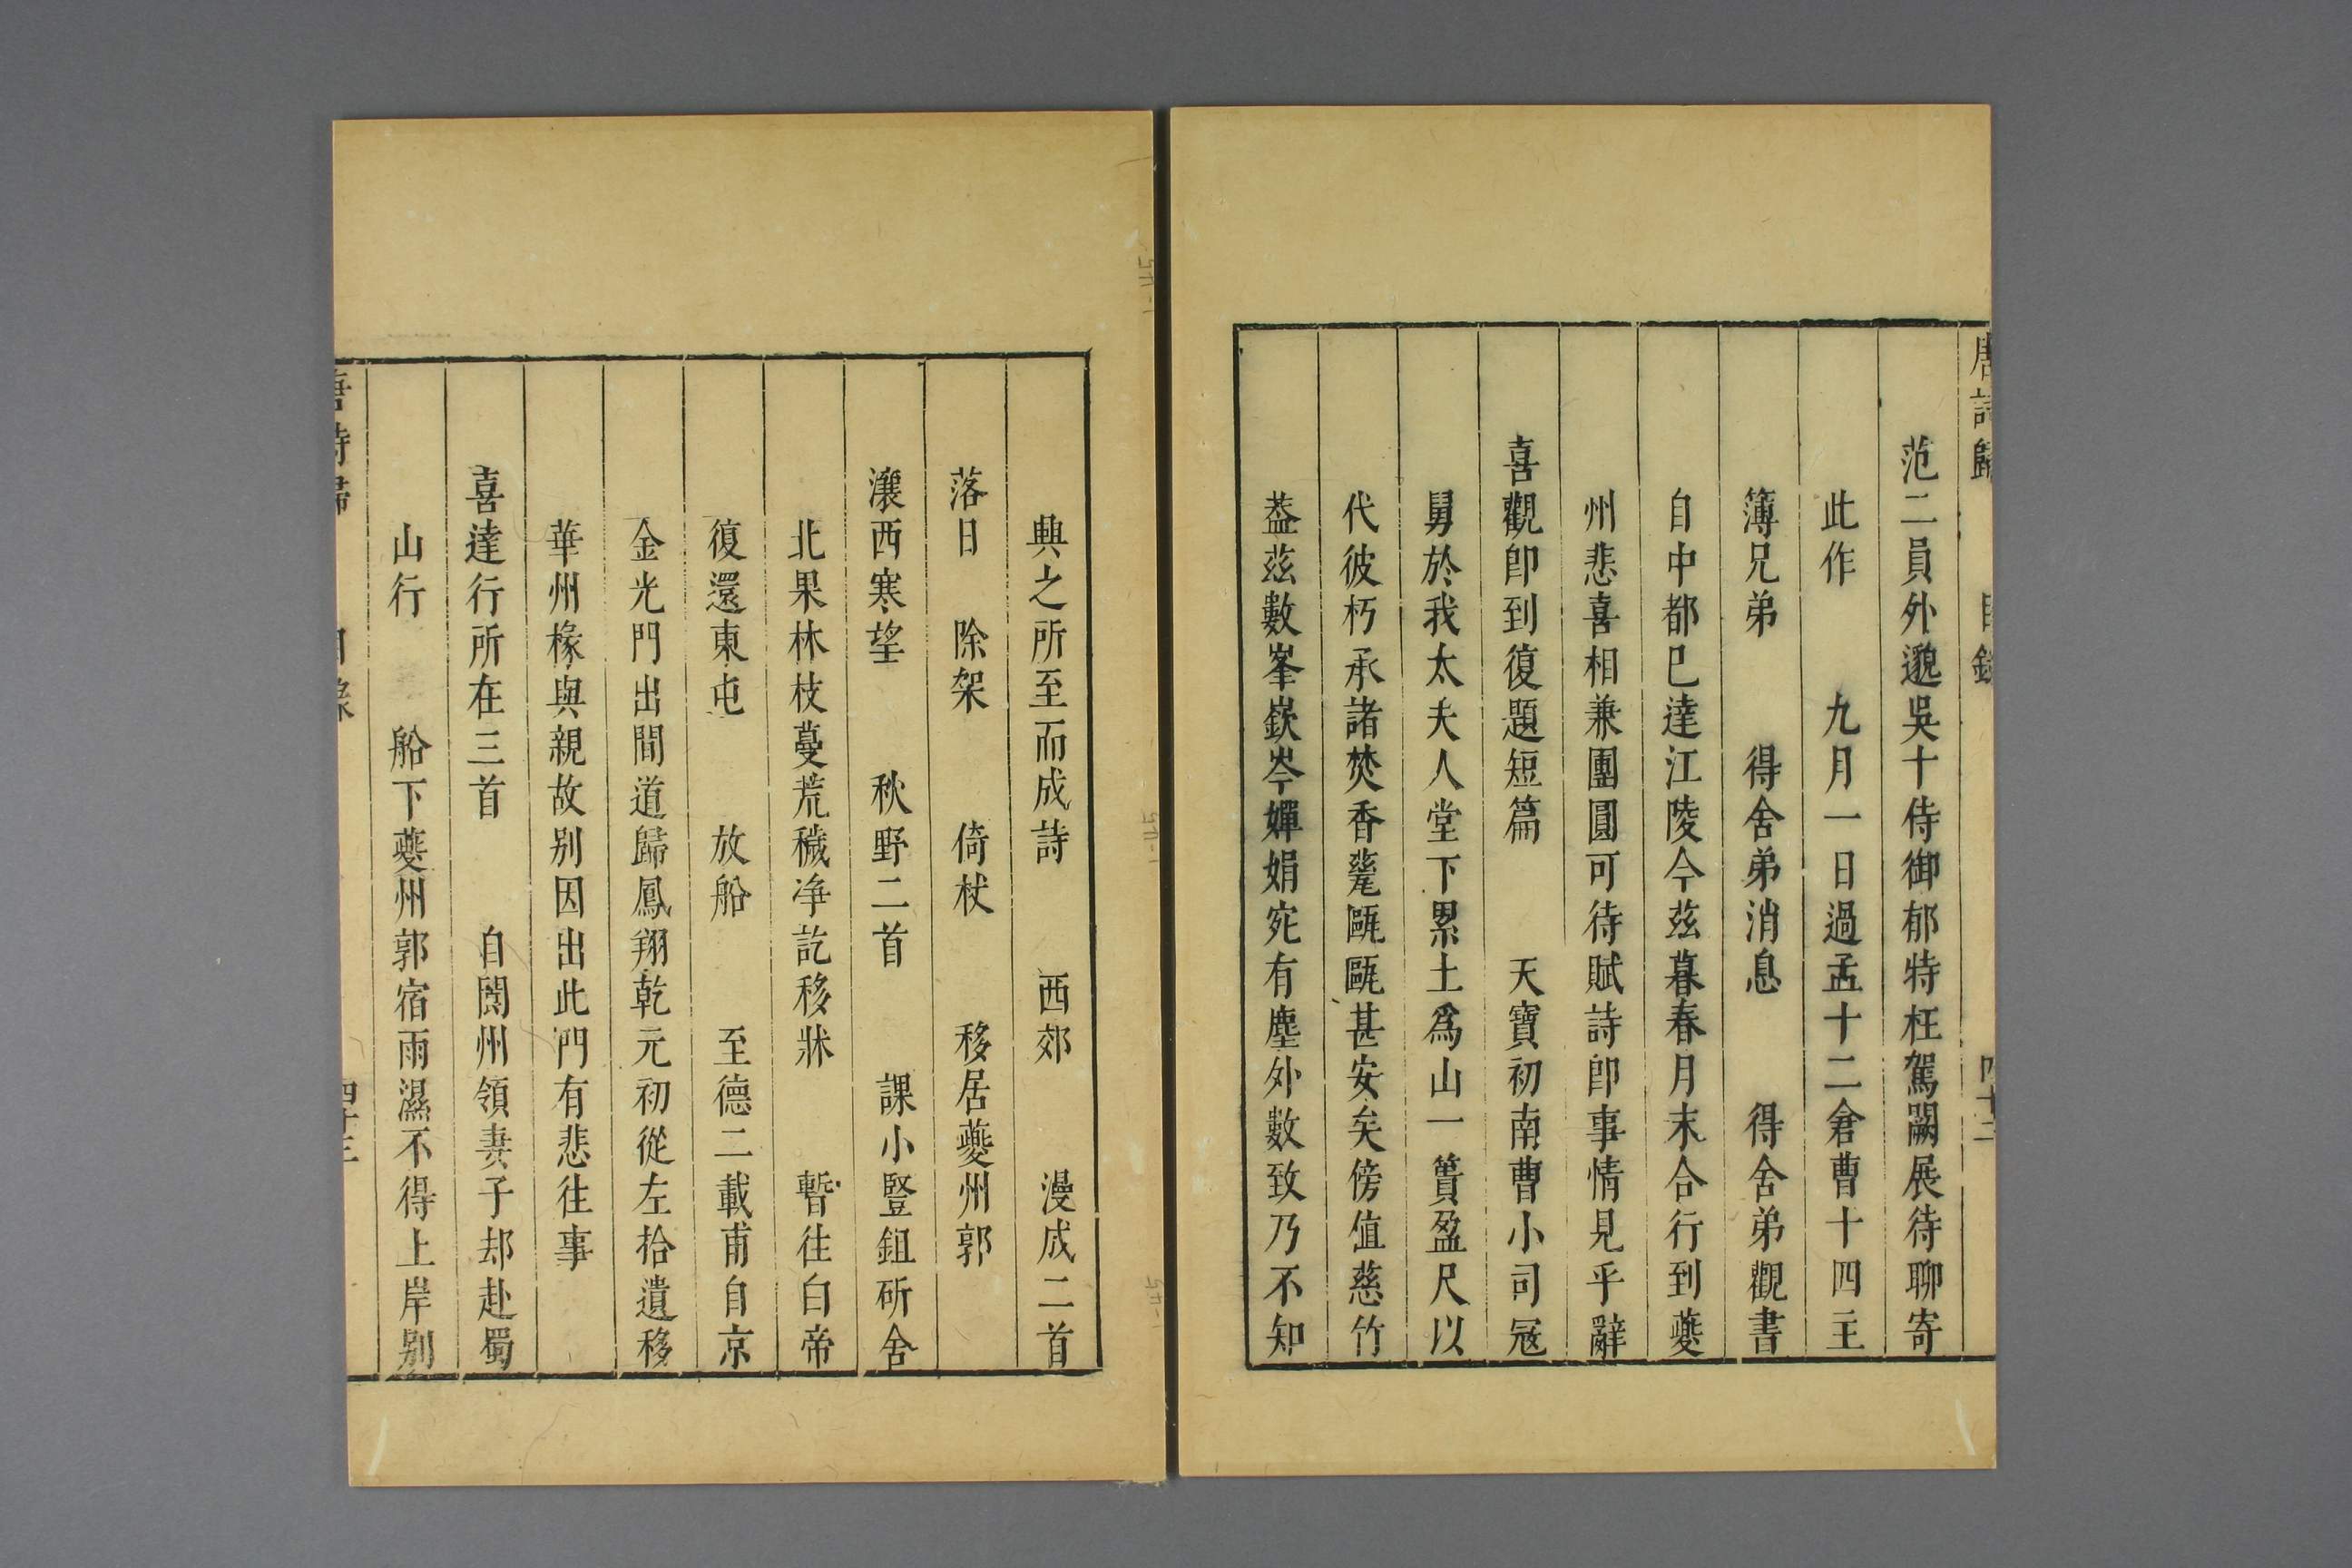 唐詩歸 目錄 四十二
范二員外邈吳十侍御郁特枉駕闕展待聊寄
此作 九月一日過孟十二倉曹十四主
簿兄弟 得舍弟消息 得舍弟觀書
自中都已達江陵今茲暮春月末合行到夔
州悲喜相兼團圓可待賦詩卽事情見乎辭
喜觀卽到復題短篇 天寶初南曹小司冦
舅於我太夫人堂下累土爲山一簣盈尺以
代彼朽承諸焚香甆甌甌甚安矣傍值慈竹
葢茲數峯嶔岑嬋娟宛有塵外數致乃不知
興之所至而成詩 西郊 漫成二首
落日 除架 倚杖 移居夔州郭
瀼西寒望 秋野二首 課小豎鉏斫舍
北果林枝蔓荒穢净訖移牀 暫往白帝
復還東屯 放船 至德二載甫自京
金光門出間道歸鳳翔乾元初從左拾遺移
華州椽與親故别因出此門有悲往事
喜達行所在三首 自閬州領妻子却赴蜀
山行 船下夔州郭宿雨濕不得上岸别
唐詩歸 目錄 四十三